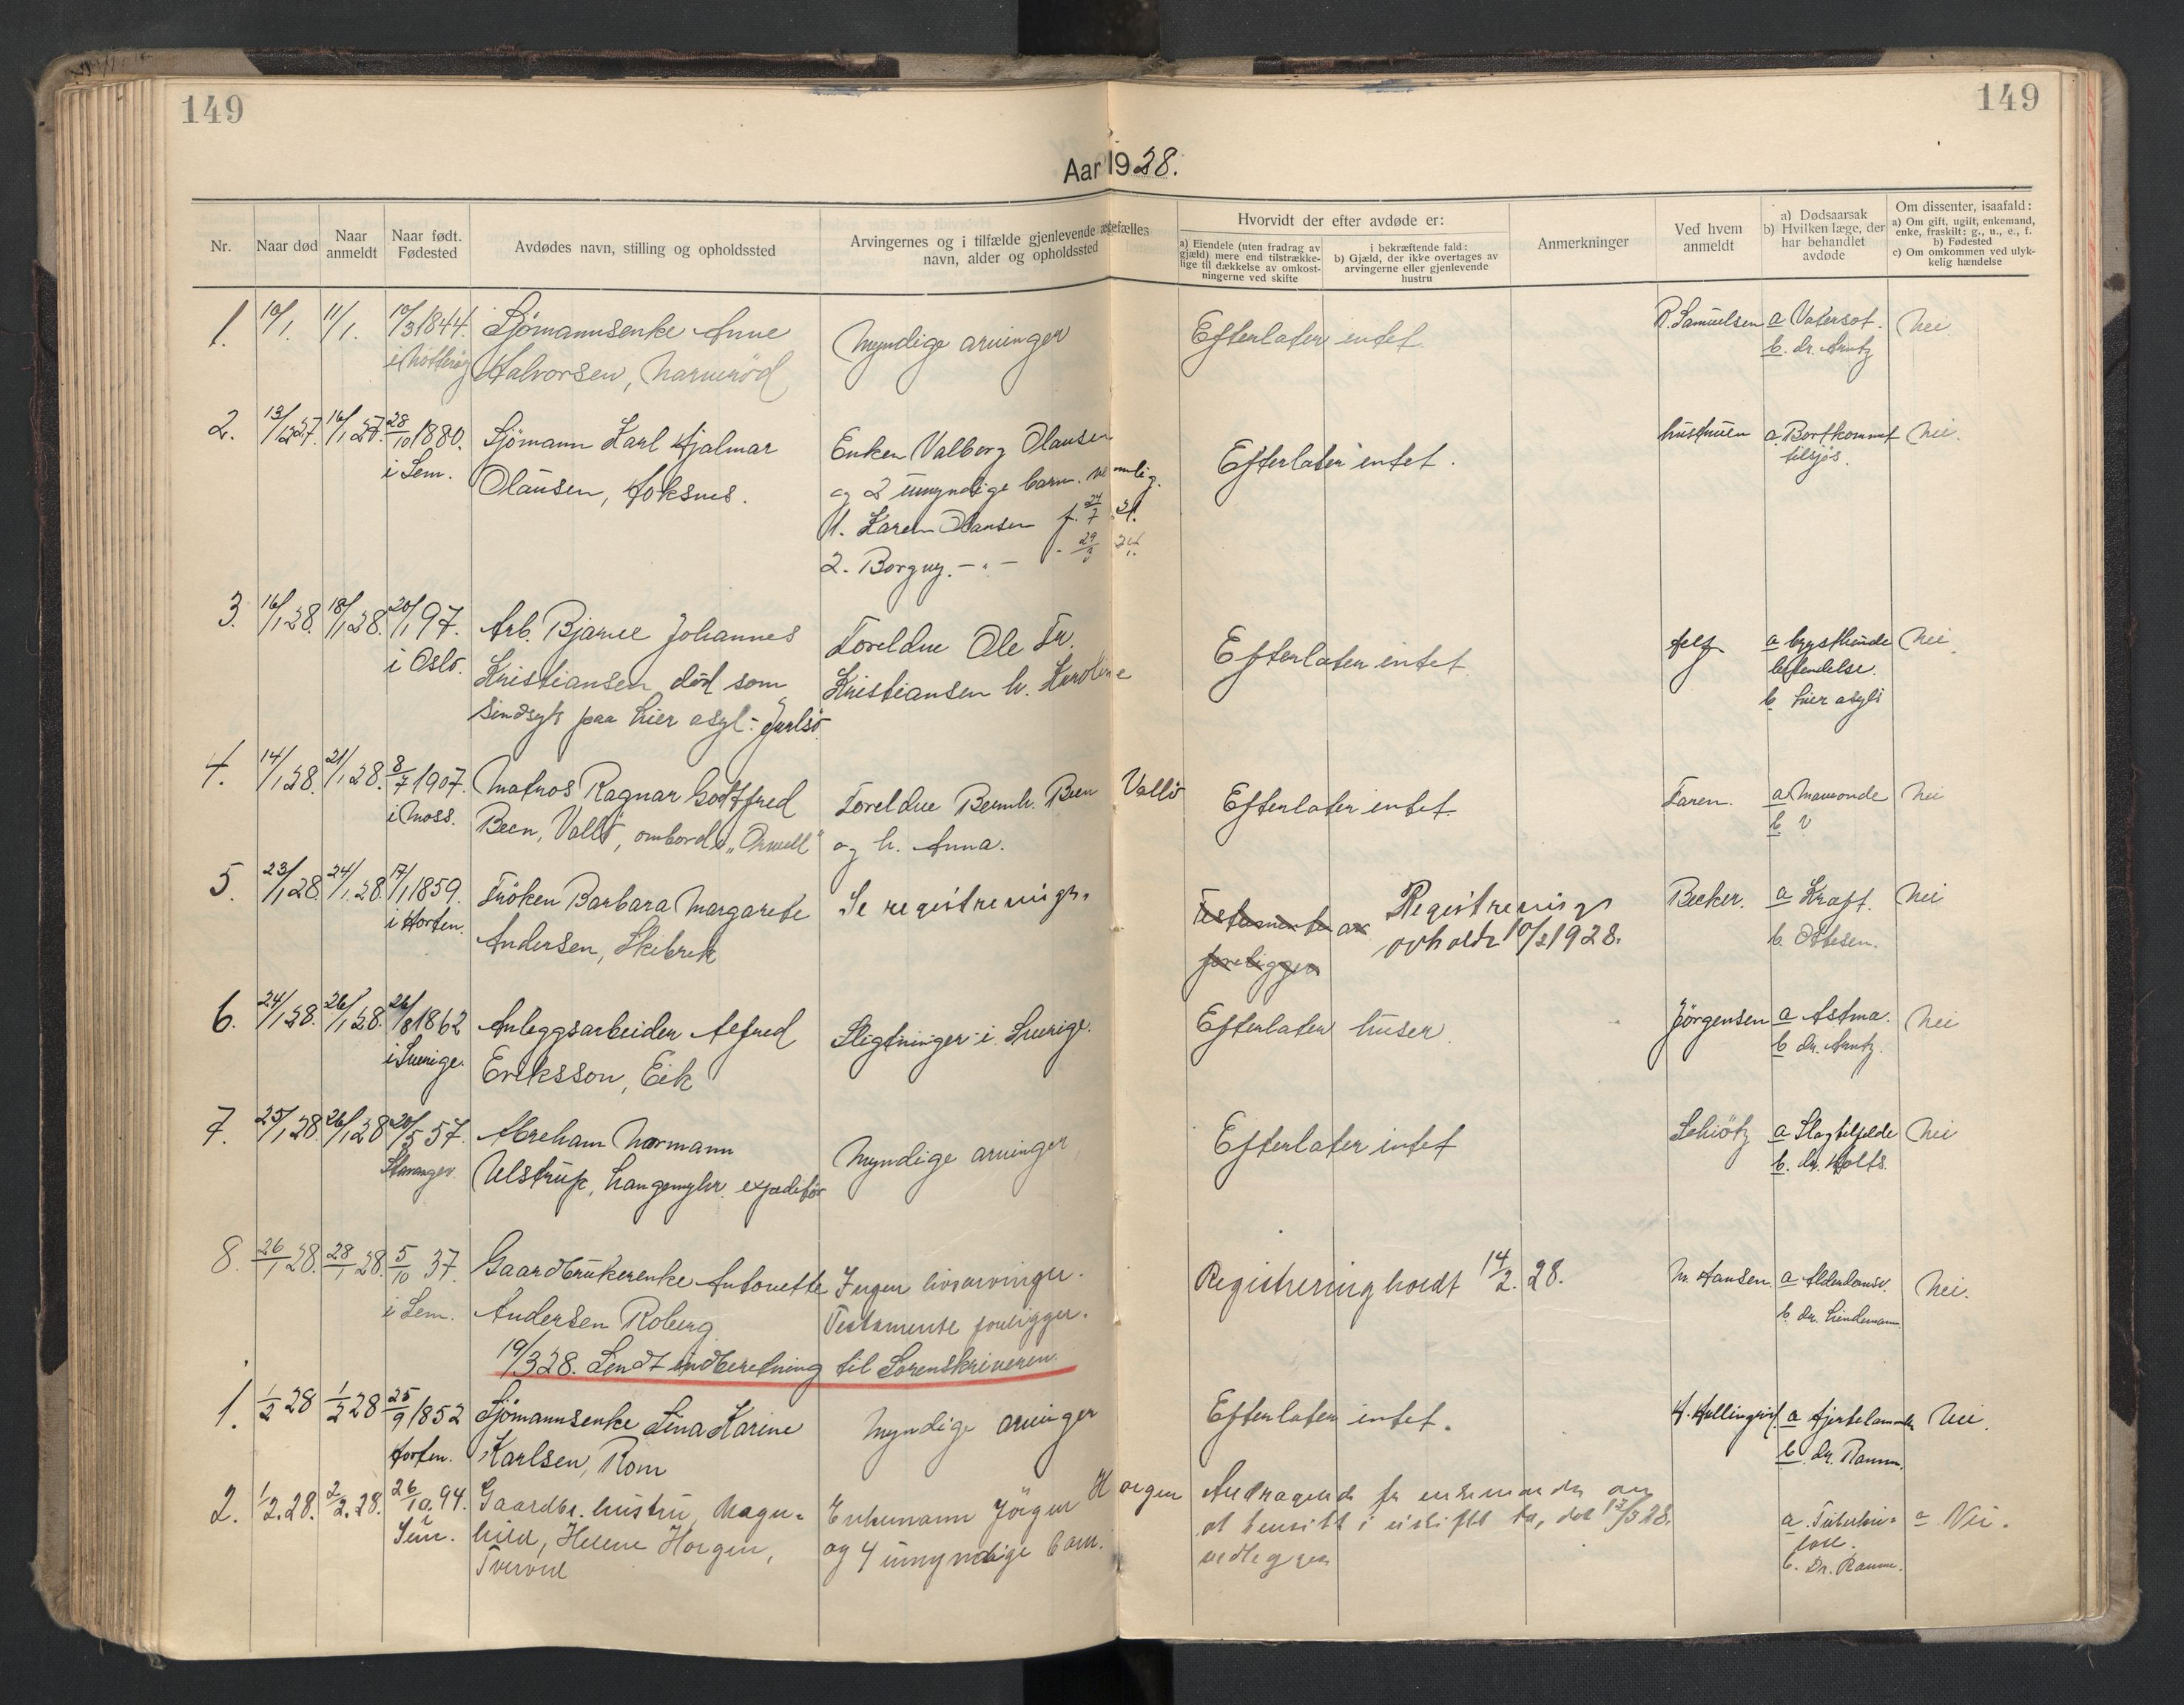 149
149
Aar 1928.
Nr.
Naar død
Naar anmeldt
Naar født. Fødested
Avdødes navn, stilling og opholdssted
Arvingernes og i tilfælde gjenlevende ægtefælles
navn, alder og opholdssted
Hvorvidt der efter avdøde er:
a) Eiendele (uten fradrag av
gjæld) mere end tilstrække-
lige til dækkelse av omkost-
ningerne ved skifte
i bekræftende fald:
b) Gjæld, der ikke overtages av
arvingerne eller gjenlevende
hustru
Anmerkninger
Ved hvem
anmeldt
a) Dødsaarsak
b) Hvilken læge, der
har behandlet
avdøde
Om dissenter, isaafald:
a) Om gift, ugift, enkemand,
enke, fraskilt: g., u., e., f.
b) Fødested
c) Om omkommen ved ulyk-
kelig hændelse
1. 10/1. 11/1. 10/3 1844. Sjømannsenke Anne Myndige arvinger Efterlater intet. R. Samuelsen a Vatersot. Nei
i Nøtterøy Halvorsen, Narverød b. dr. Arntz
2. 13/12 27. 16/1 27. 28/10 1880. Sjømann Karl Hjalmar Enken Valborg Olausen Efterlater intet. hustruen a. Bortkommet Nei.
i Sem. Olausen, Foksnes. og 2 umyndige barn. nemlig. tilsjøs.
1. Karen Olausen f. 24/7 21.
2. Borgny. - " - - 29/3 24.
3. 16/1 28. 18/1 28. 20/1 97. Arb. Bjarne Johannes Foreldre Ole Fr. Efterlater intet a brysthinde Nei
i Oslo. Kristiansen død som Kristiansen h. Karoline betendelse.
Sindsyk paa Lier asyl - Jarlsø. b. Lier asyl
4. 14/1 28. 21/1 28. 8/7 1907. Matros Ragnar Gottfred Foreldre Bernh. Been Vallø Efterlater intet. Faren. a Nei
i Moss. Been, Vallø, ombord i „Orwell“ og h. Anna. b ?
5. 23/1 28 24/1 28. 17/1 1859. Frøken Barbara Margarete Se registrerings. Testamente Registrerings Becker. a Kræft. Nei
i Horten. Andersen, Skibrek foreligger avholdt 10/2 1928. b. Ottesen.
6. 24/1 28. 26/1 28. 26/8 1862 Anleggsarbeider Alfred Sligtninger i Sverige. Efterlater huser. Jørgensen a Astma. Nei
i Sverige. Eriksson, Eik b dr. Arntz.
7. 25/1 28. 26/1 28 20/5 57. Abraham Normann Myndige arvinger, Efterlater intet Schiøtz a Slagtilfelde Nei
Stavanger. Ulstrup, Langemyhr. expeditør b. dr. Holts.
8. 26/1 28. 28/1 28. 5/10 37. Gaardbrukerenke Antonette Ingen livsarvinger. Registrering holdt 14/2. 28. M. Hansen. a Alderdomsv. Nei.
i Sem. Andersen Roberg. Testamente foreligger. b. Dr. Lindemann.
19/3 28. Sendt indberetning til Sorenskriveren.
1. 1/2 28 1/2 28 25/9 1852 Sjømannsenke Lina Karine Myndige arvinger Efterlater intet. a Hjertelammelse Nei.
Horten. Karlsen, Rom b Dr. Ramm.
2. 1/2. 28. 2/2. 28. 26/10. 94. Gaardbr. hustru, Magn- Enkemann Jørgen Horgen Andragende fra enkemanden om a. Tuberku- a Nei.
Sem. hild, Helene Horgen, og 4 umyndige barn. at hensitte i uskiftet bo, dat 12/3 28. lose.
Tverved vedlegges b. Dr. Ramm.